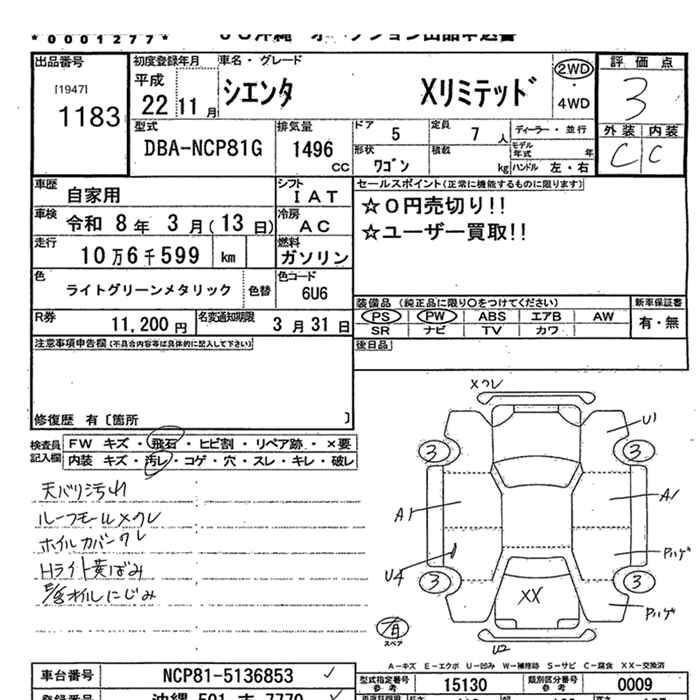 *0001277*
出品番号
[1947]
1183
初度登録年月
平成
22 11 月
車名・グレード
シエンタ Xリミテッド
2WD
・
4WD
評価点
3
外装 内装
C C
型式
DBA-NCP81G
排気量
1496
cc
ドア 5
定員 7 人
ディーラー・並行
形状
ワゴン
積載
kg
モデル年式 年
ハンドル 左・右
車歴 自家用
シフト
IAT
車検 令和 8 年 3 月(13 日)
冷房
AC
走行 10万6千599 km
燃料
ガソリン
色
ライトグリーンメタリック
色替
色コード
6U6
R券
11,200 円
名変通知期限
3 月 31 日
セールスポイント(正常に機能するものに限ります)
☆0円売切り!!
☆ユーザー買取!!
装備品 (純正品に限り○をつけてください)
PS PW ABS エアB AW
SR ナビ TV カワ
新車保証書
有・無
後日品
注意事項申告欄(不具合内容等は具体的に記入して下さい)
修復歴 有〔箇所 〕
検査員
記入欄
FW キズ・飛石・ヒビ割・リペア跡・×要
内装 キズ・汚レ・コゲ・穴・スレ・キレ・破レ
天バリ汚れ
ルーフモールメクレ
ホイルカバークレ
Hライト黄ばみ
E/Gオイルにじみ
メクレ
U1
3 3
A1 A1
Pハゲ
U4
3 3
XX
Pハゲ
U2
スペア
A-キズ E-エクボ U-凹み W-補修時 S-サビ C-腐食 XX-交換済
車台番号 NCP81-5136853
型式指定番号
参考
15130
類別区分番号
参考
0009